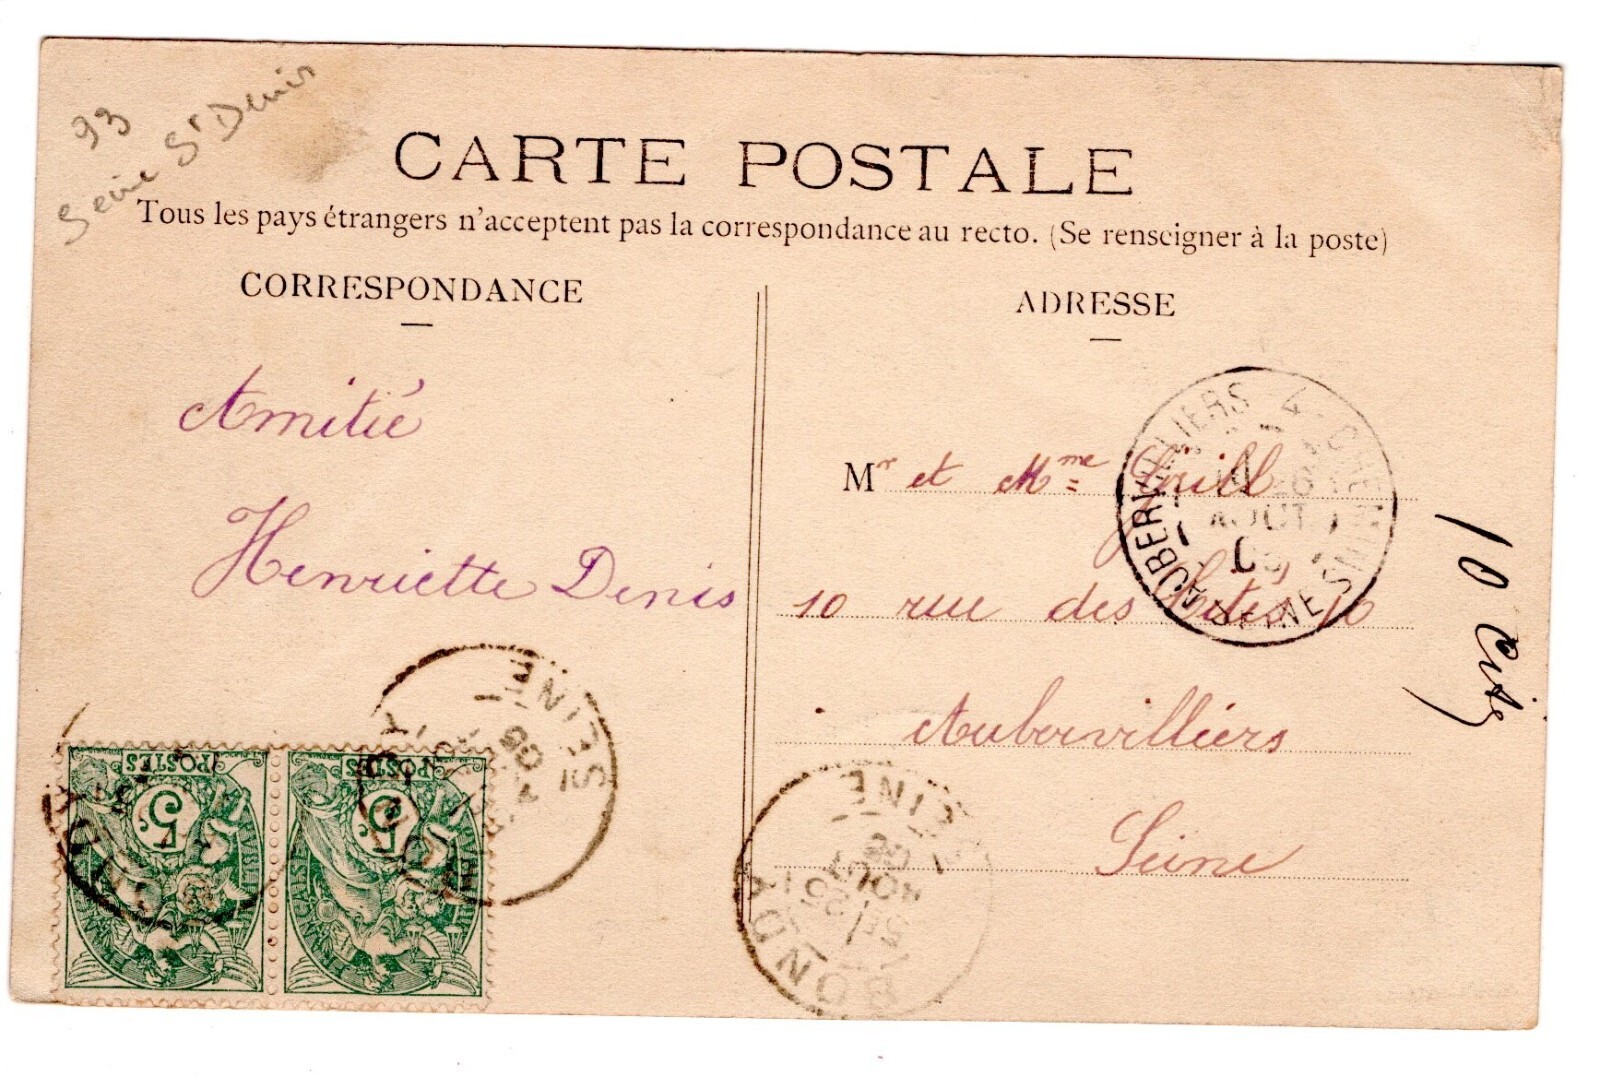 93
Seine St Denis
CARTE POSTALE
Tous les pays étrangers n'acceptent pas la correspondance au recto. (Se renseigner à la poste)
CORRESPONDANCE
ADRESSE
Amitié
Henriette Denis
Mr et Mme
10 rue des Cités 10
Aubervilliers
Seine
10 Cités
AUBERVILLIERS
AOUT
SEINE
BONDY
SEINE
BONDY
AOUT
SEINE
POSTES
5c
POSTES
5c